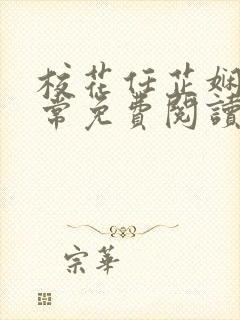 校花任芷娴
常免費閱讀
宗華